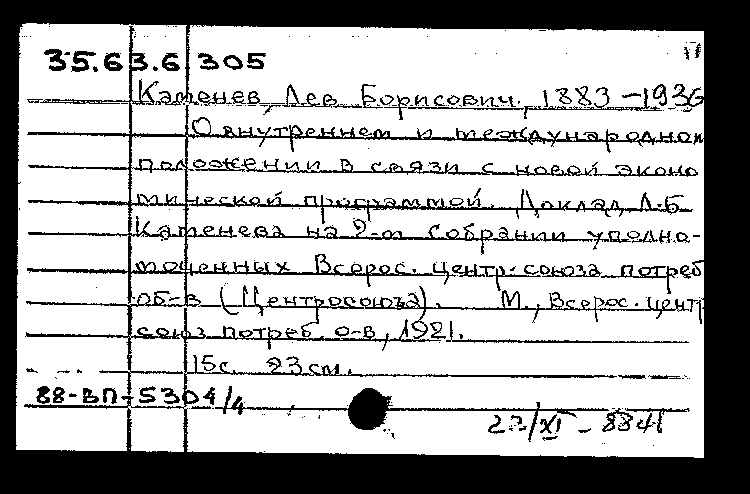 35.63.6.305
17
Каменев, Лев Борисович, 1883-1936
О внутреннем и международном
положении в связи с новой эконо
мической программой. Доклад Л.Б.
Каменева на 2-м собрании уполно-
моченных Всерос. центр. союза потреб
об-в (Центросоюза). М., Всерос. центр
союз потреб. о-в, 1921.
15с. 23см.
88-ВП-5304/4